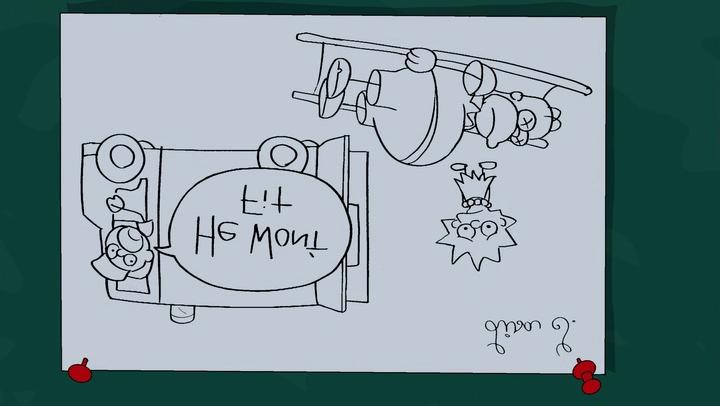 He Won't
Fit